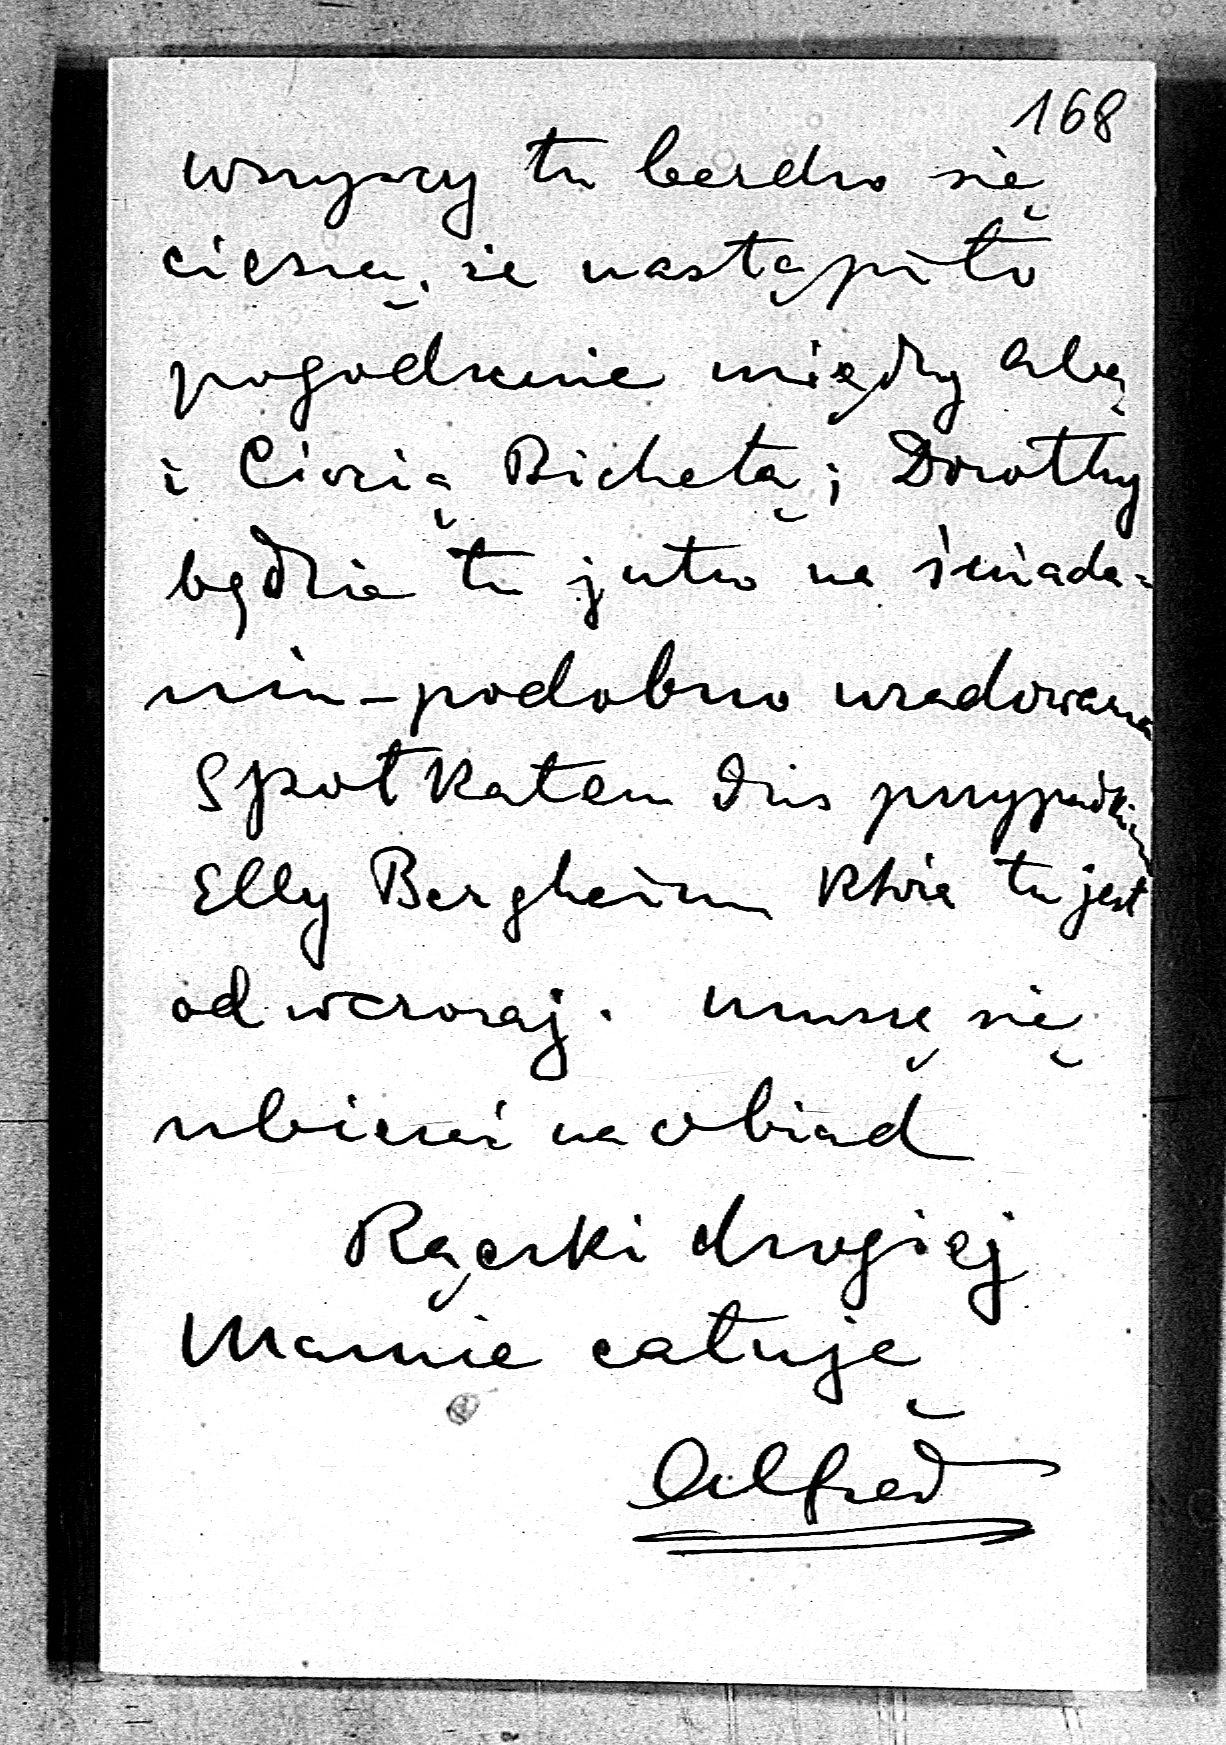 168
wszyscy tu bardzo się
cieszą, że nastąpiło
pogodzenie między Abą
i Ciocią Bichetą; Dorothy
będzie tu jutro na śniada=
niu – podobno uradowana
Spotkałem dziś przypadkiem
Elly Bergheim która tu jest
od wczoraj. muszę się
ubierać na obiad
Rączki drogiej
Mamie całuję
Alfred